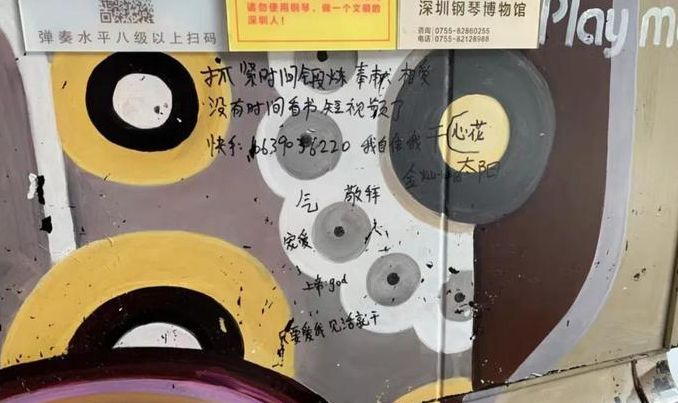 弹奏水平八级以上扫码
请勿使用钢琴，做一个文明的
深圳人！
深圳钢琴博物馆
咨询 / 0755-82860255
电话 / 0755-82128988
Play m
抓紧时间锻炼 奉献 相爱
没有时间看书 短视频了
快乐 我自信
心花
太阳
气 敬拜
宠爱
上帝 god
要爱 见活就干